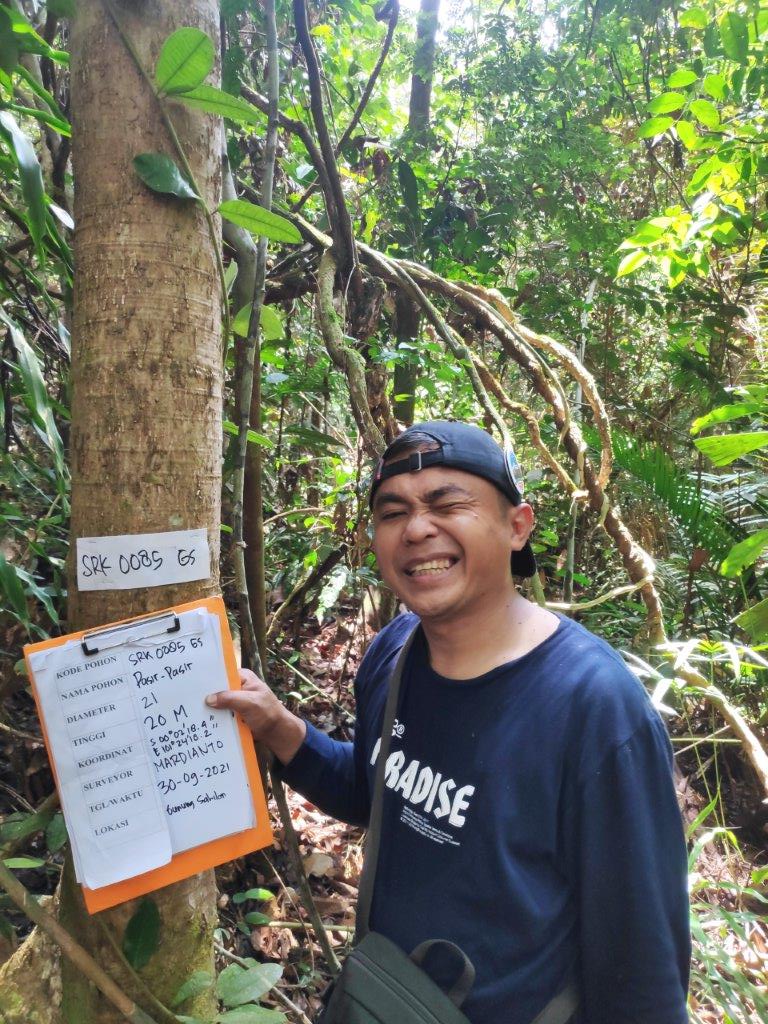 SRK 0085 ES
KODE POHON SRK 0085 ES
NAMA POHON Pasir-Pasir
DIAMETER 21
TINGGI 20 M
KOORDINAT S 00°02'18.9" E 101°24'18.2"
SURVEYOR MARDIANTO
TGL/WAKTU 30-09-2021
LOKASI Gunung Sahilan
RADISE